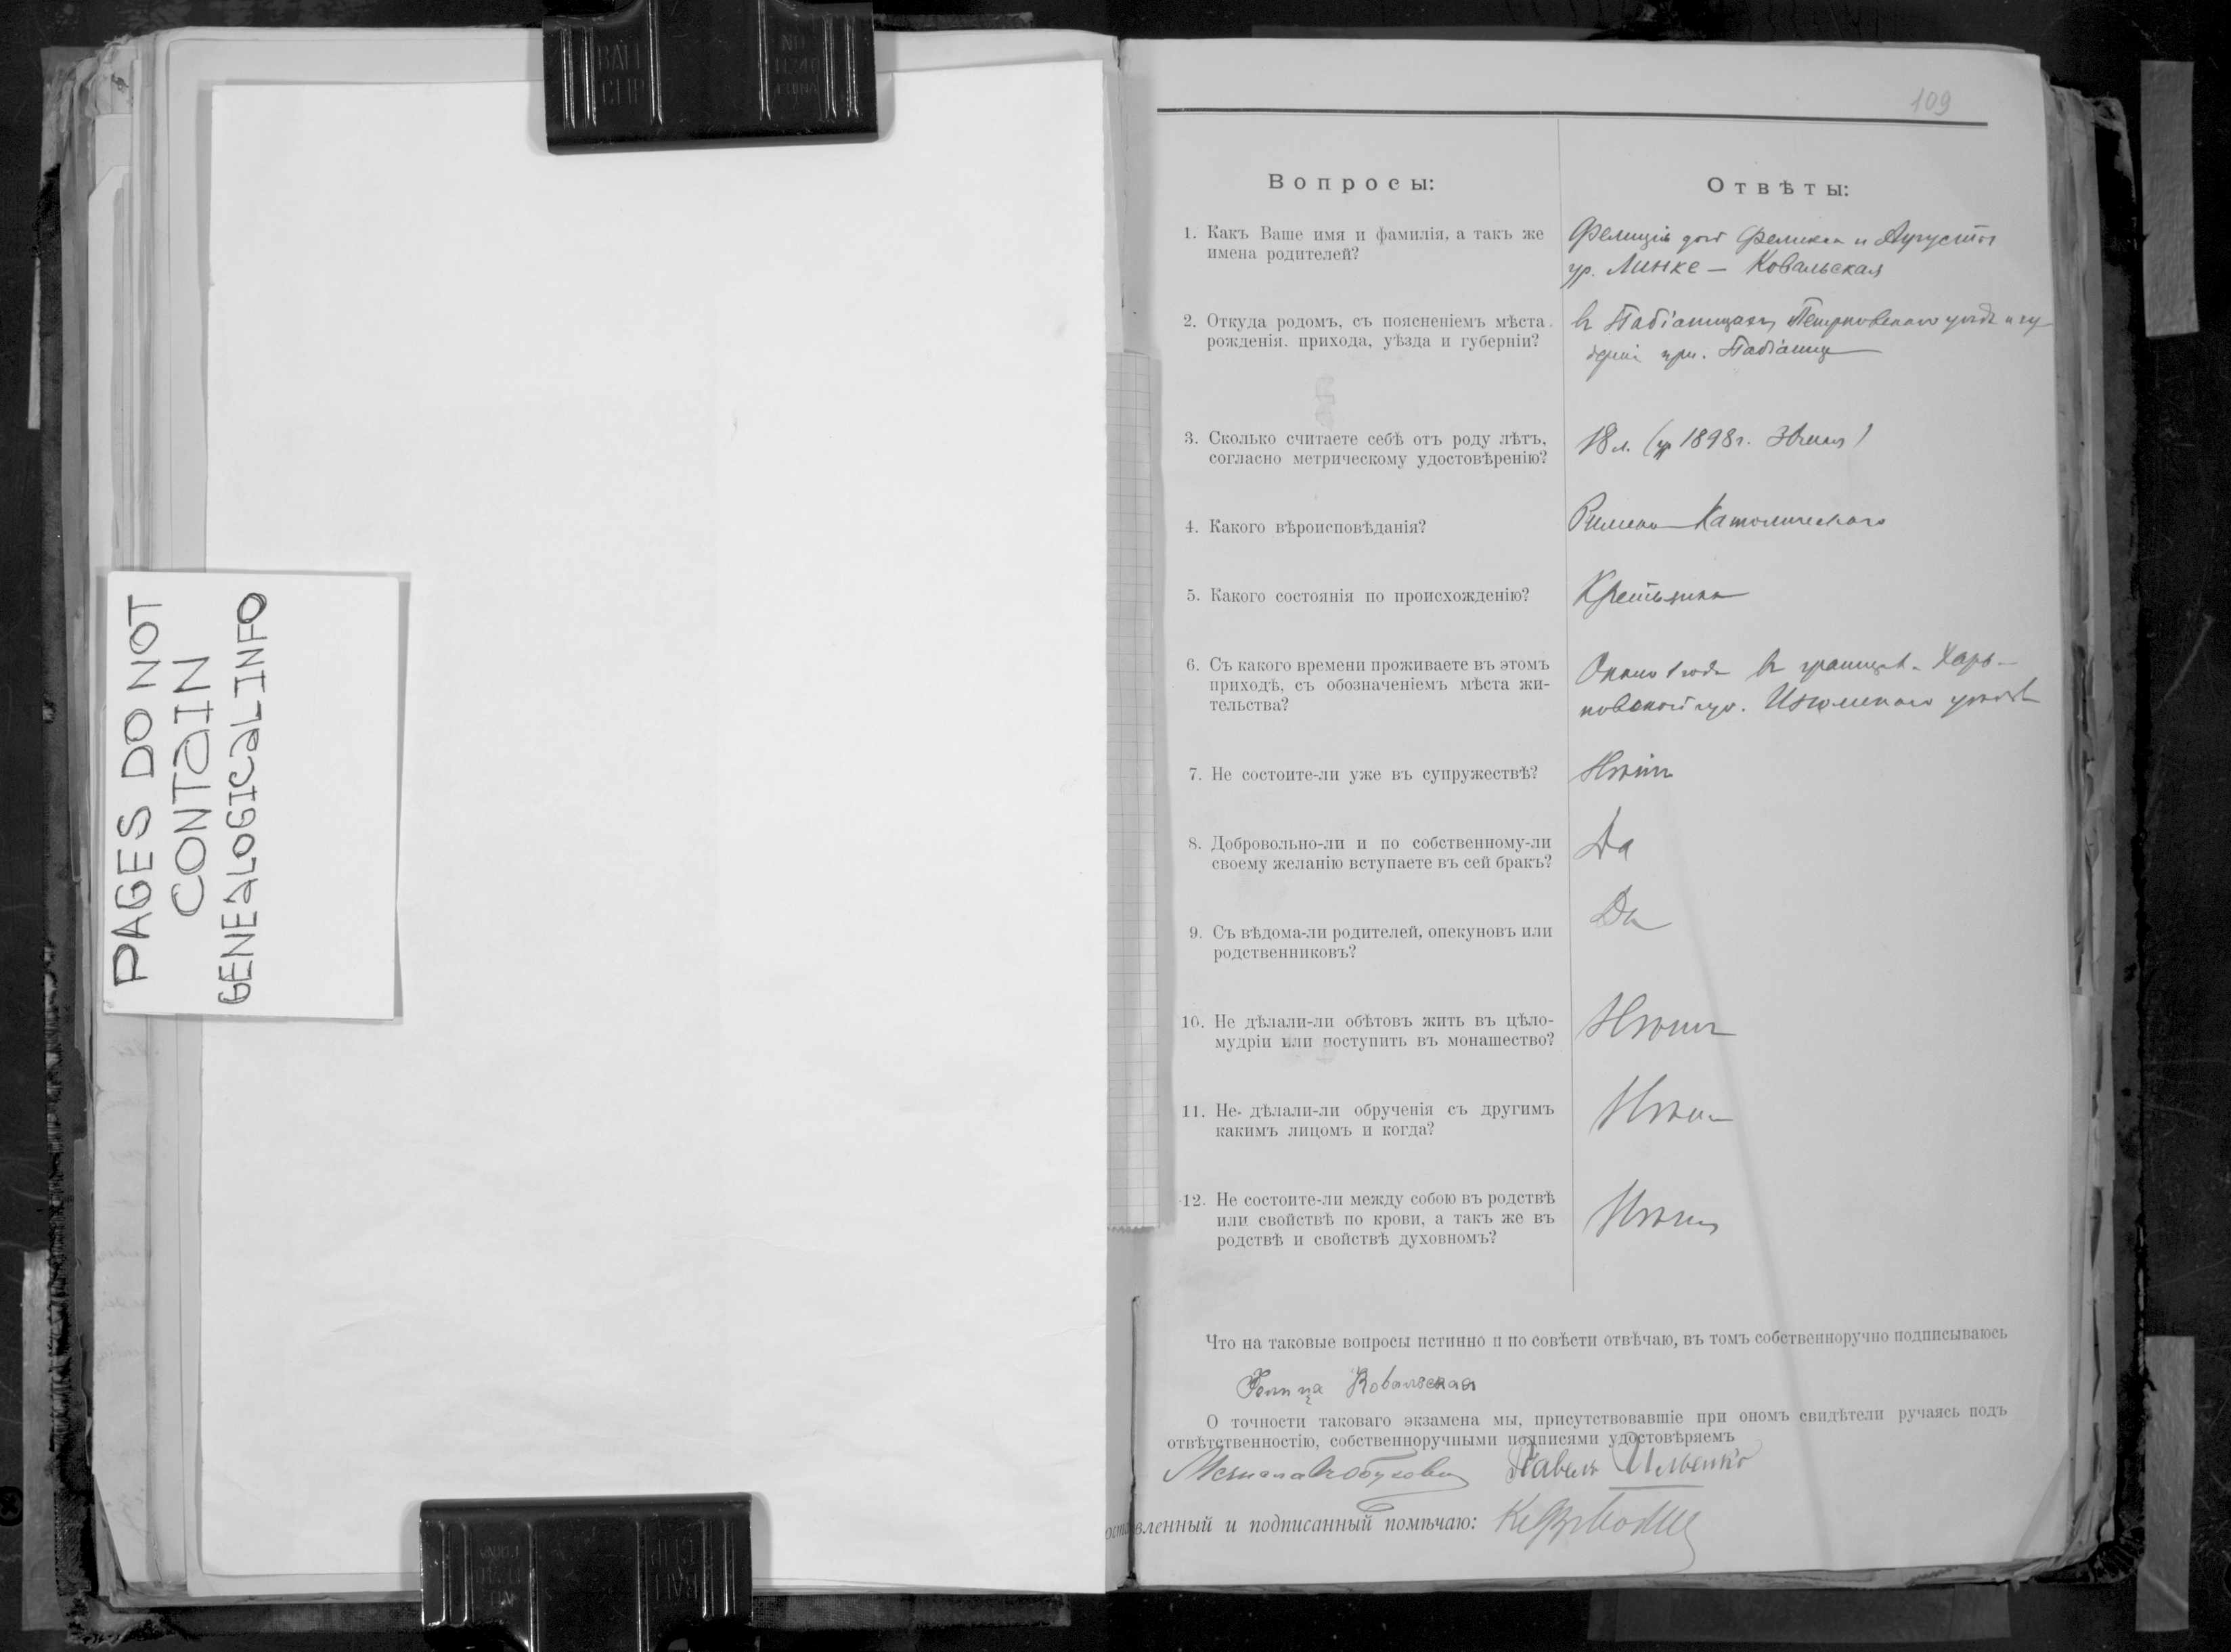 BALL
CLIP
NO
PAGES DO NOT
CONTAIN
GENEALOGICAL INFO
109
Вопросы:
Отвѣты:
1. Какъ Ваше имя и фамилія, а такъ же
имена родителей?
Фелиція дочь Феликса и Августы
ур. Линке — Ковальская
2. Откуда родомъ, съ поясненіемъ мѣста
рожденія, прихода, уѣзда и губерніи?
въ Пабіаницахъ Петроковскаго уѣзда и гу-
берніи при. Пабіанице
3. Сколько считаете себѣ отъ роду лѣтъ,
согласно метрическому удостовѣренію?
18 л. 1898 г.
4. Какого вѣроисповѣданія?
Римско-Католическаго
5. Какого состоянія по происхожденію?
Крестьянка
6. Съ какого времени проживаете въ этомъ
приходѣ, съ обозначеніемъ мѣста жи-
тельства?
Около года въ Харь-
ковской губ. Изюмскаго уѣзда
7. Не состоите-ли уже въ супружествѣ?
Нѣтъ
8. Добровольно-ли и по собственному-ли
своему желанію вступаете въ сей бракъ?
Да
9. Съ вѣдома-ли родителей, опекуновъ или
родственниковъ?
Да
10. Не дѣлали-ли обѣтовъ жить въ цѣло-
мудріи или поступить въ монашество?
Нѣтъ
11. Не дѣлали-ли обрученія съ другимъ
какимъ лицомъ и когда?
Нѣтъ
12. Не состоите-ли между собою въ родствѣ
или свойствѣ по крови, а такъ же въ
родствѣ и свойствѣ духовномъ?
Нѣтъ
Что на таковые вопросы истинно и по совѣсти отвѣчаю, въ томъ собственноручно подписываюсь
Ковальская
О точности таковаго экзамена мы, присутствовавшіе при ономъ свидѣтели ручаясь подъ
отвѣтственностію, собственноручными подписями удостовѣряемъ
Павелъ Ильенко
вленный и подписанный помѣчаю: